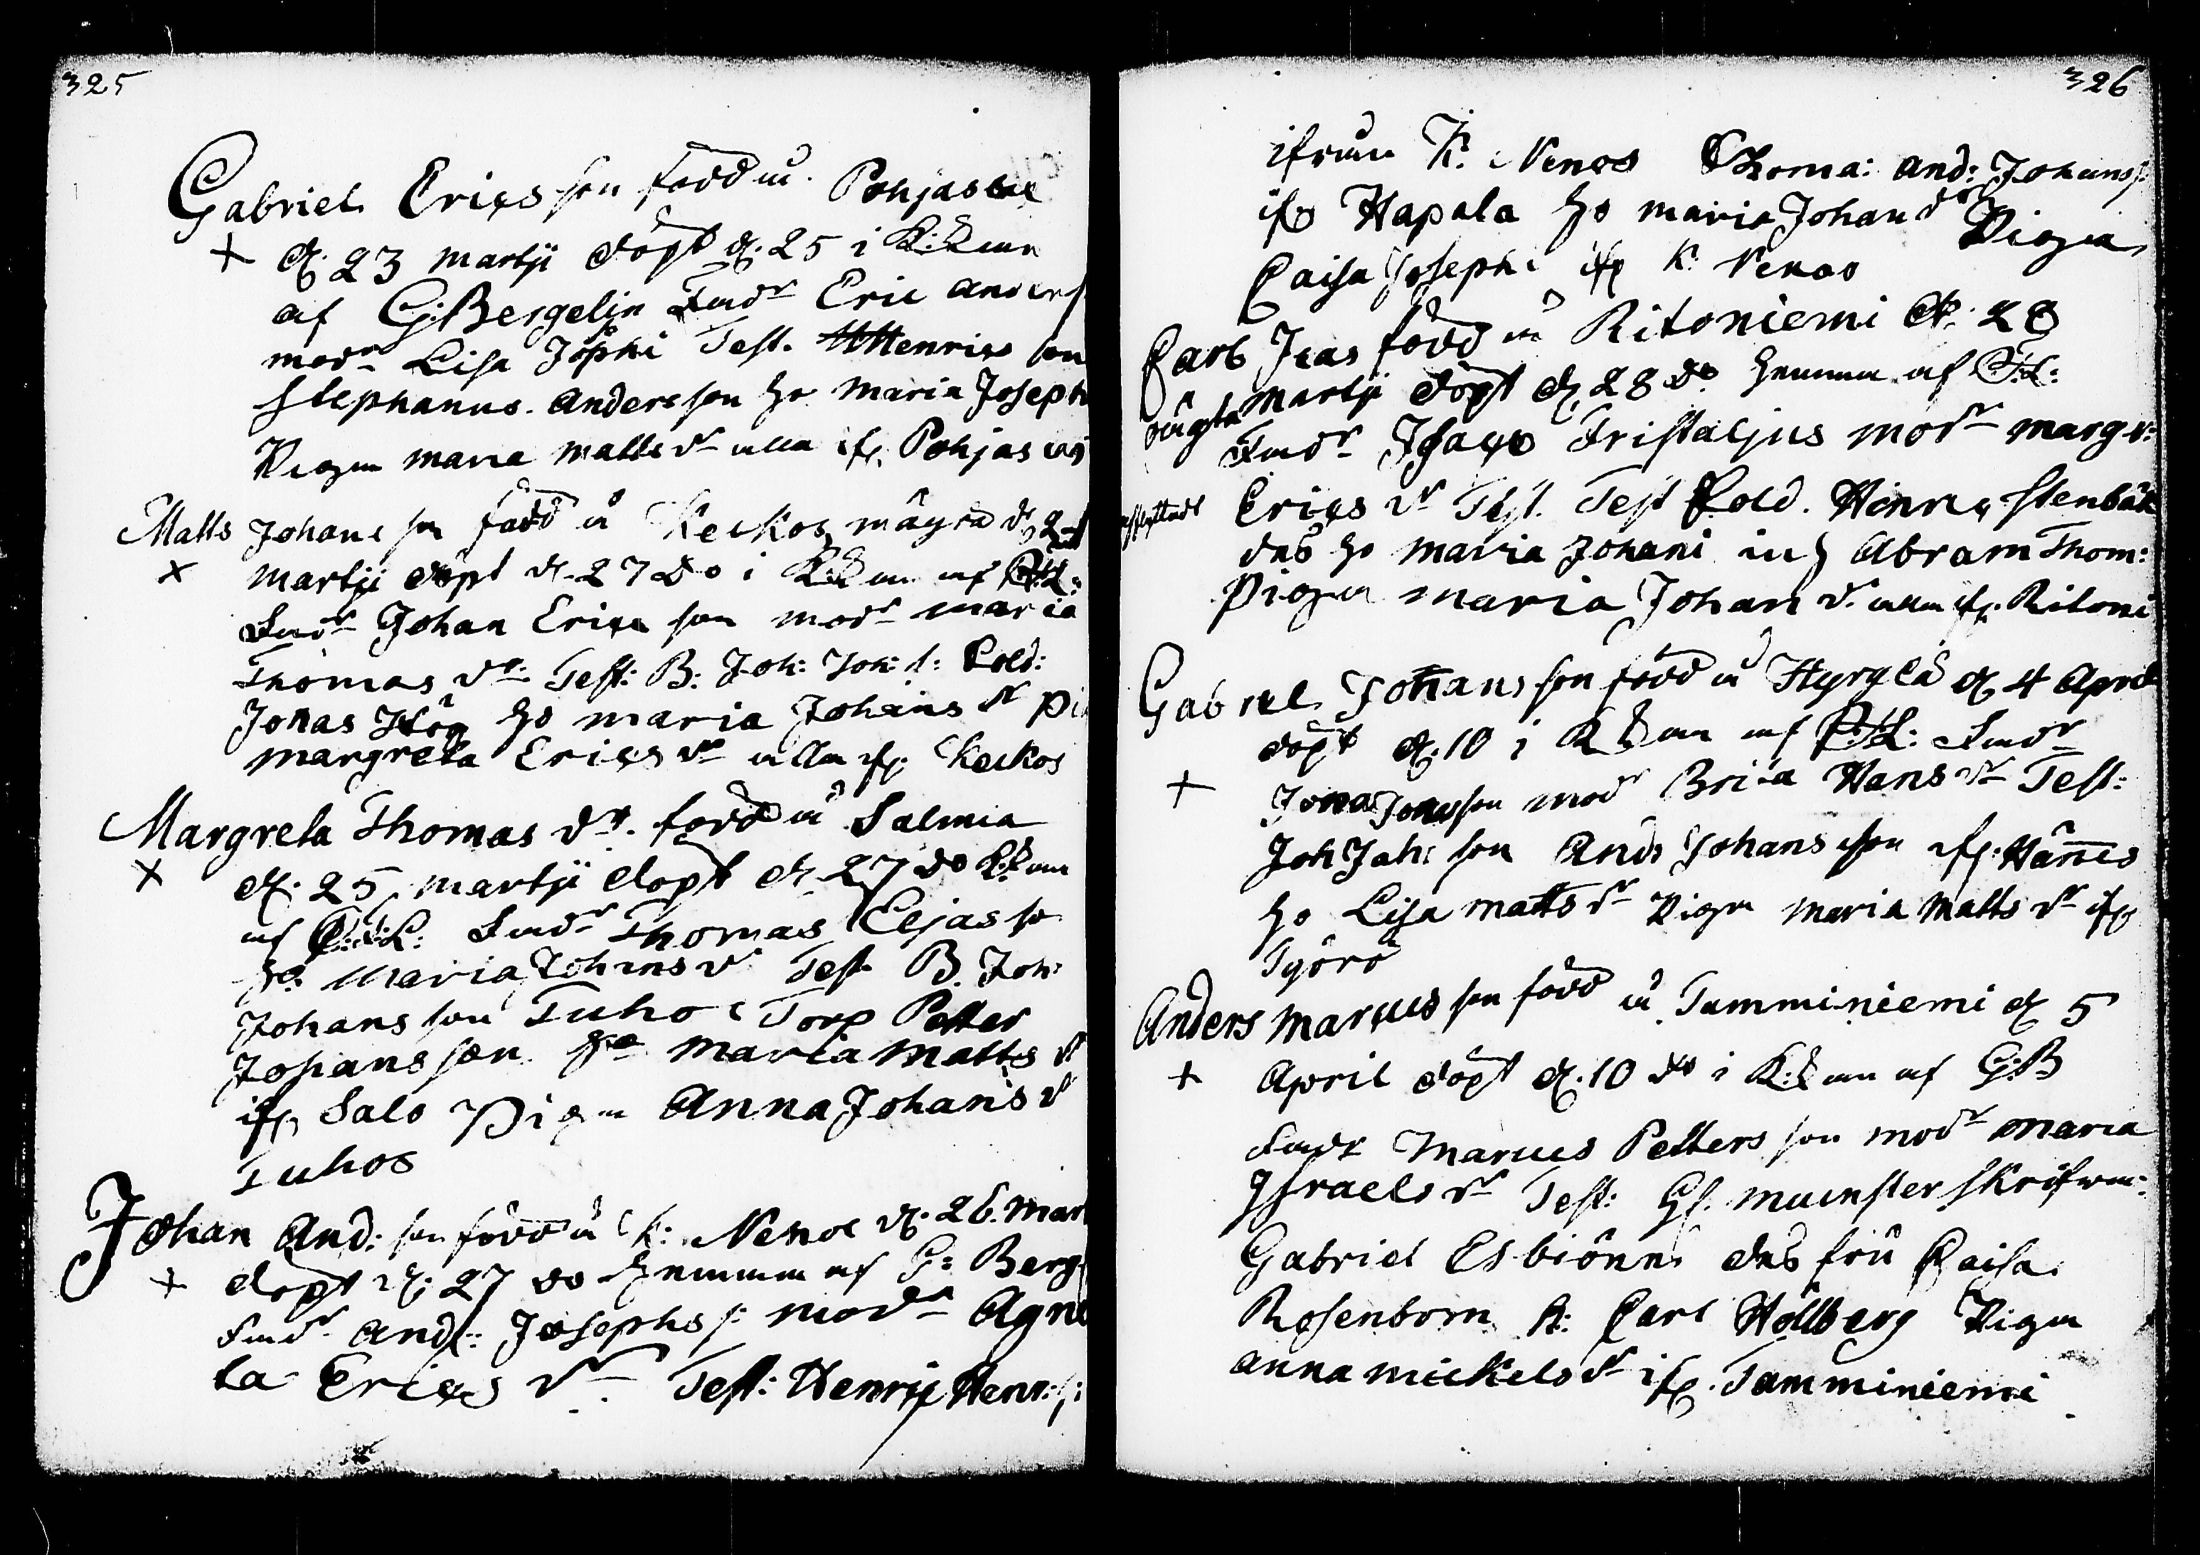 325
Gabriel Ericsson född i Pohjaslax
+ d. 23 Martji döpt d. 25 i K:kan
af G:Bergelin Fadr Eric Anders
modr Lisa Jophi Test. Henrics son
Stephanus Andersson ho Maria Joseph
Pigan Maria Matts dr alla ifr. Pohjas
Matts Johans son född i Keckos d. 24
× Martji döpt d. 27 do i K:kan af
Fadr Johan Erics son modr Maria
Thomas dr: Test: B: Joh: Joh: s: Sold:
Jonas Hög ho Maria Johans dr Pi
Margreta Erics dr alla ifr. Keckos
Margreta Thomas dr. född i Salmia
× d. 25 Martji döpt d. 27 do K:kan
af Fadr Thomas Eljas so
ho: Maria Johans dr Test B. Joh:
Johans son Tuho Torp Petter
Johans son ho Maria Matts dr
ifr Salo Pigan Anna Johans dr
Tuhos
Johan And: son född i K: Nenos d. 26. Mart
+ döpt d. 27 do hemma af G: Berg
Fadr And: Josephs s: modr Agne
ta Erics dr Test: Henric Henr: s:
326
ifrån K. Nenos Thoma: And: Johans s:
ifr Hapala ho Maria Johan dr Pigan
Caisa Josephi ifr K. Nenos
Carl Isas född i Ritoniemi d. 28
oäghta Martji döpt d 28 do hemma af
Fadr Isacs Tristaljus modr Margr:
Erics dr Test. Test Sold. Henric Stenbäk
des ho Maria Johani inh Abram Thom:
Pigan Maria Johan dr. alla ifr. Ritoni
Gabriel Johans son född i Hyrylä d. 4 April
döpt d. 10 i K kan af Fadr
+ Jona Jonasson modr Brita Hans dr Test:
Joh Joh: son Anders Johans son ifr. Hännis
ho Lisa Matts dr Pigan Maria Matts dr ifr
Työrö
Anders Marcus son född i Tamminiemi d 5
+ April döpt d. 10 do i K:kan af G:B
Fadr Marcus Petters son modr Maria
Israels dr Test: Hl. munster skrifwa:
Gabriel Esbiörn des fru Caisa
Rosenborn h: Carl Höllberg Pigan
Anna Mickels dr ifr. Tamminiemi